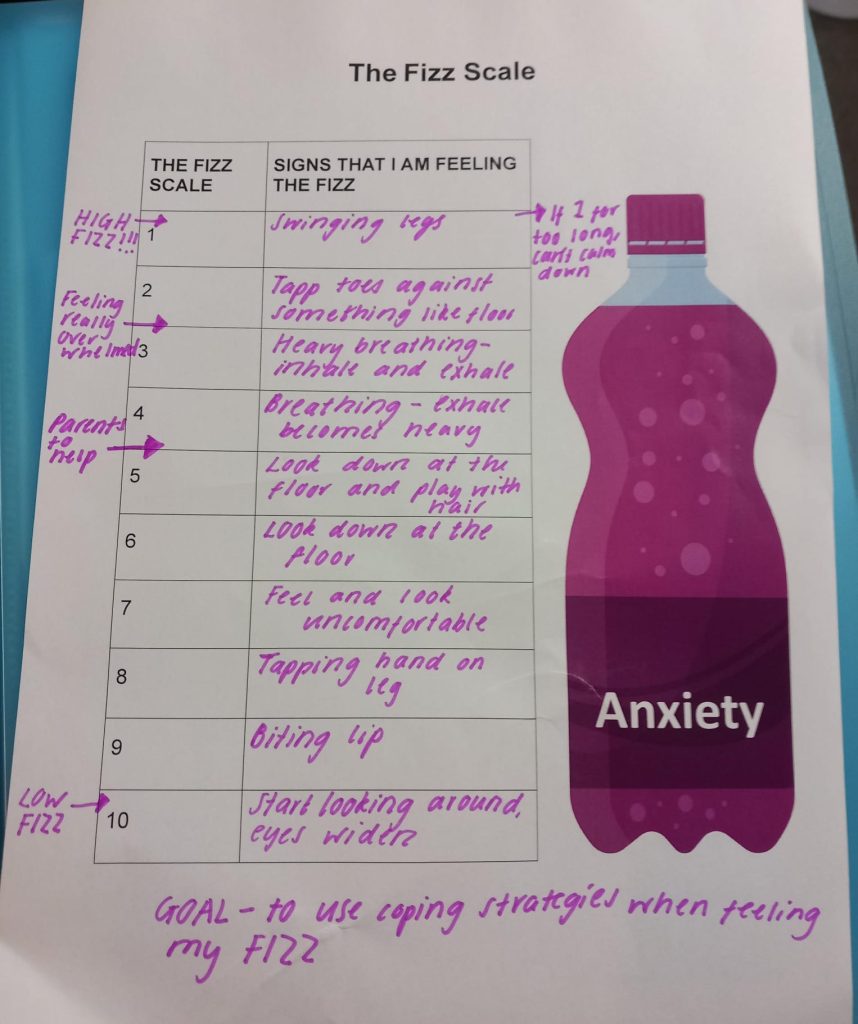 The Fizz Scale
THE FIZZ
SCALE
SIGNS THAT I AM FEELING
THE FIZZ
HIGH
FIZZ!!!
1
Swinging legs
If I for
too long,
can't calm
down
2
Tapp toes against
something like floor
Feeling
really
over
whelmed
3
Heavy breathing-
inhale and exhale
4
Breathing - exhale
becomes heavy
Parents
to
help
5
Look down at the
floor and play with
hair
6
Look down at the
floor
7
Feel and look
uncomfortable
8
Tapping hand on
leg
9
Biting lip
LOW
FIZZ
10
Start looking around,
eyes widen
Anxiety
GOAL - to use coping strategies when feeling
my FIZZ